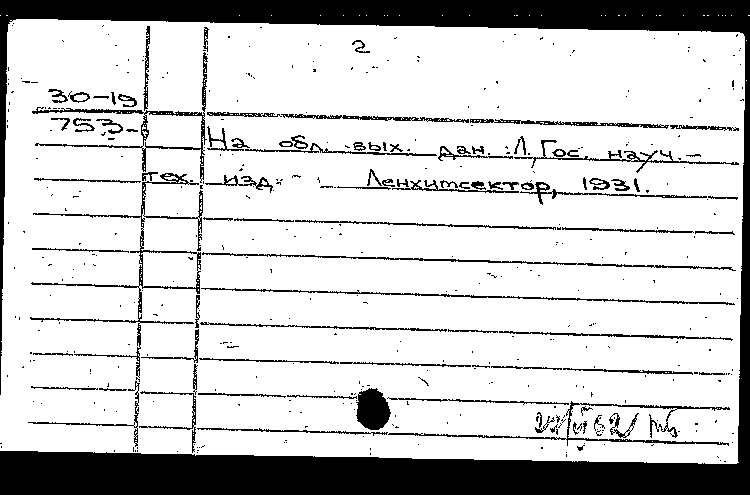 2
30-19
753-6
На обл. вых. дан.: Л., Гос. науч.-
тех. изд- Ленхимсектор, 1931.